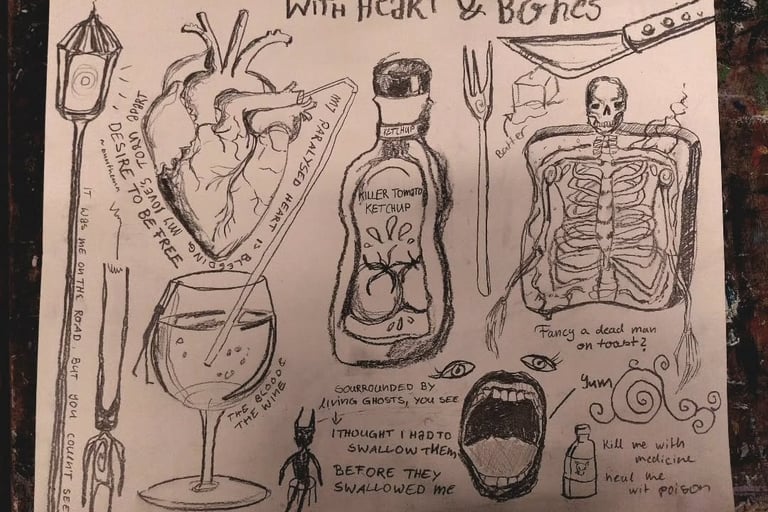 WITH HEART & BONES
MY LOVES TORN APART
DESIRE TO BE FREE
MY PARALYSED HEART IS BLEEDING
IT WAS ME ON THE ROAD, BUT YOU COULDNT SEE
KETCHUP
KILLER TOMATO
KETCHUP
Butter
Fancy a dead man
on toast?
THE BLOOD &
THE WINE
SOURROUNDED BY
LIVING GHOSTS, YOU SEE
I THOUGHT I HAD TO
SWALLOW THEM,
BEFORE THEY
SWALLOWED ME
Yum
Kill me with
medicine
heal me
wit poison